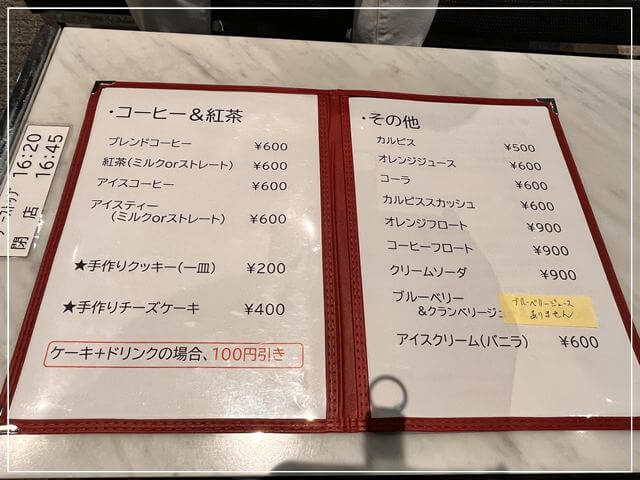 16:20
閉 店 16:45
・コーヒー&紅茶
ブレンドコーヒー ¥600
紅茶(ミルクorストレート) ¥600
アイスコーヒー ¥600
アイスティー
(ミルクorストレート) ¥600
★手作りクッキー(一皿) ¥200
★手作りチーズケーキ ¥400
ケーキ+ドリンクの場合、100円引き
・その他
カルピス ¥500
オレンジジュース ¥600
コーラ ¥600
カルピススカッシュ ¥600
オレンジフロート ¥900
コーヒーフロート ¥900
クリームソーダ ¥900
ブルーベリー
&クランベリージュ
ブルーベリージュース
ありません
アイスクリーム(バニラ) ¥600